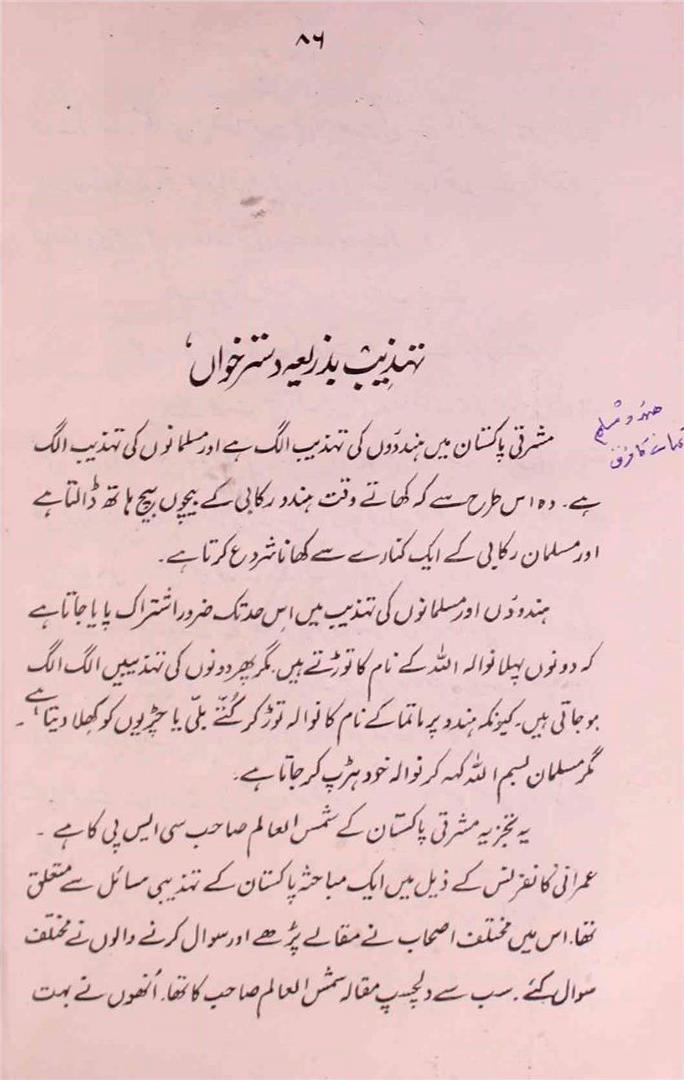 ۸۶
تہذیب بذریعہ دسترخواں
ہندو مسلم
کا فرق
مشرقی پاکستان میں ہندوؤں کی تہذیب الگ ہے اور مسلمانوں کی تہذیب الگ
ہے۔ وہ اس طرح سے کہ کھاتے وقت ہندو رکابی کے بیچوں بیچ ہاتھ ڈالتا ہے
اور مسلمان رکابی کے ایک کنارے سے کھانا شروع کرتا ہے۔
ہندوؤں اور مسلمانوں کی تہذیب میں اس حد تک ضرور اشتراک پایا جاتا ہے
کہ دونوں پہلا نوالہ اللہ کے نام کا توڑتے ہیں۔ مگر پھر دونوں کی تہذیبیں الگ الگ
ہو جاتی ہیں۔ کیونکہ ہندو پرماتما کے نام کا نوالہ توڑ کر کُتّے بلّی یا چڑیوں کو کھلا دیتا ہے۔
مگر مسلمان بسم اللہ کہہ کر نوالہ خود ہڑپ کر جاتا ہے۔
یہ تجزیہ مشرقی پاکستان کے شمس العالم صاحب سی ایس پی کا ہے۔
عمرانی کانفرنس کے ذیل میں ایک مباحثہ پاکستان کے تہذیبی مسائل سے متعلق
تھا۔ اس میں مختلف اصحاب نے مقالے پڑھے اور سوال کرنے والوں نے مختلف
سوال کئے۔ سب سے دلچسپ مقالہ شمس العالم صاحب کا تھا۔ اُنھوں نے بہت